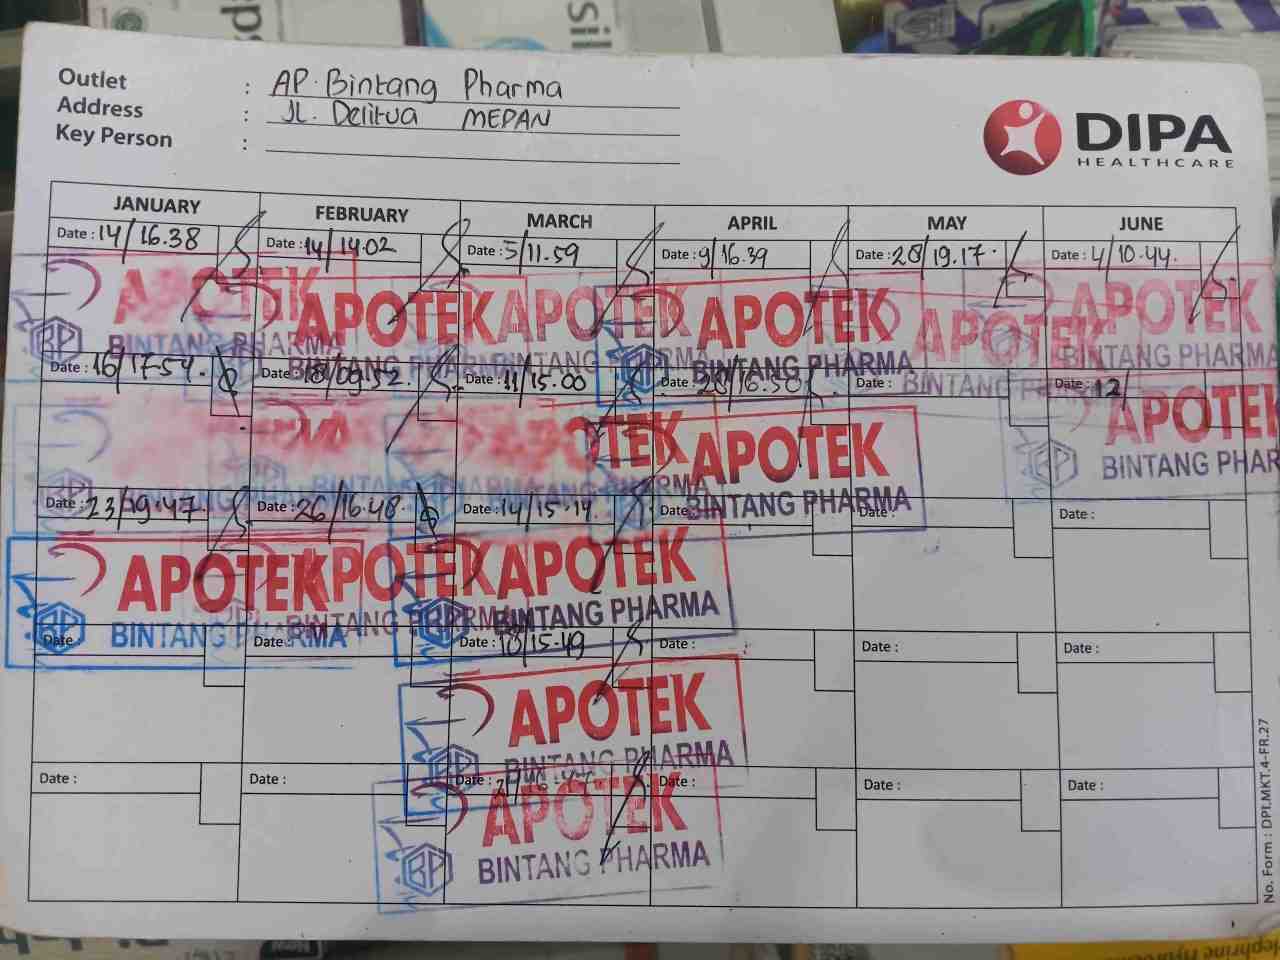 Outlet : AP. Bintang Pharma
Address : JL. Delitua MEDAN
Key Person :
DIPA
HEALTHCARE
JANUARY FEBRUARY MARCH APRIL MAY JUNE
Date : 14/16.38 Date : 14/14.02 Date : 5/11.59 Date : 9/16.39 Date : 28/19.17 Date : 4/10.44
APOTEK APOTEK APOTEK APOTEK APOTEK APOTEK
BINTANG PHARMA BINTANG PHARMA BINTANG PHARMA BINTANG PHARMA BINTANG PHARMA
Date : 16/17.54 Date : 18/09.52 Date : 11/15.00 Date : 28/16.50 Date : Date : 12/
APOTEK APOTEK
BINTANG PHARMA BINTANG PHAR
Date : 23/19.47 Date : 26/16.48 Date : 14/15.19 Date : Date : Date :
APOTEK APOTEK APOTEK
BP BINTANG PHARMA BINTANG PHARMA BINTANG PHARMA
Date : Date : Date : 18/15.49 Date : Date : Date :
APOTEK
BINTANG PHARMA
Date : Date : Date : Date : Date : Date :
APOTEK
BP BINTANG PHARMA
No. Form : DPI.MKT.4-FR.27